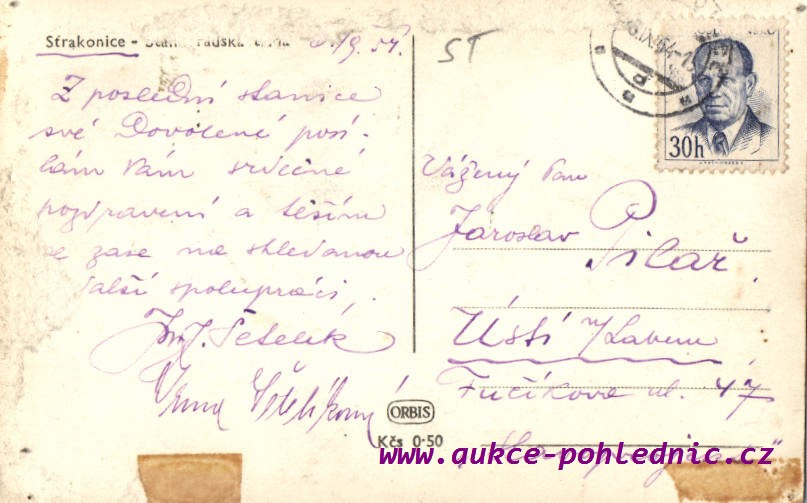 Strakonice -
ST
Z poslední stanice
své Dovolené posí-
lám Vám srdečné
pozdravení a těším
se zase na shledanou
další spolupráci,
30h
Vážený Pan
Jaroslav Pilař.
Ústí n/Labem
Fučíkova ul. 47
ORBIS
Kčs 0·50
www.aukce-pohlednic.cz